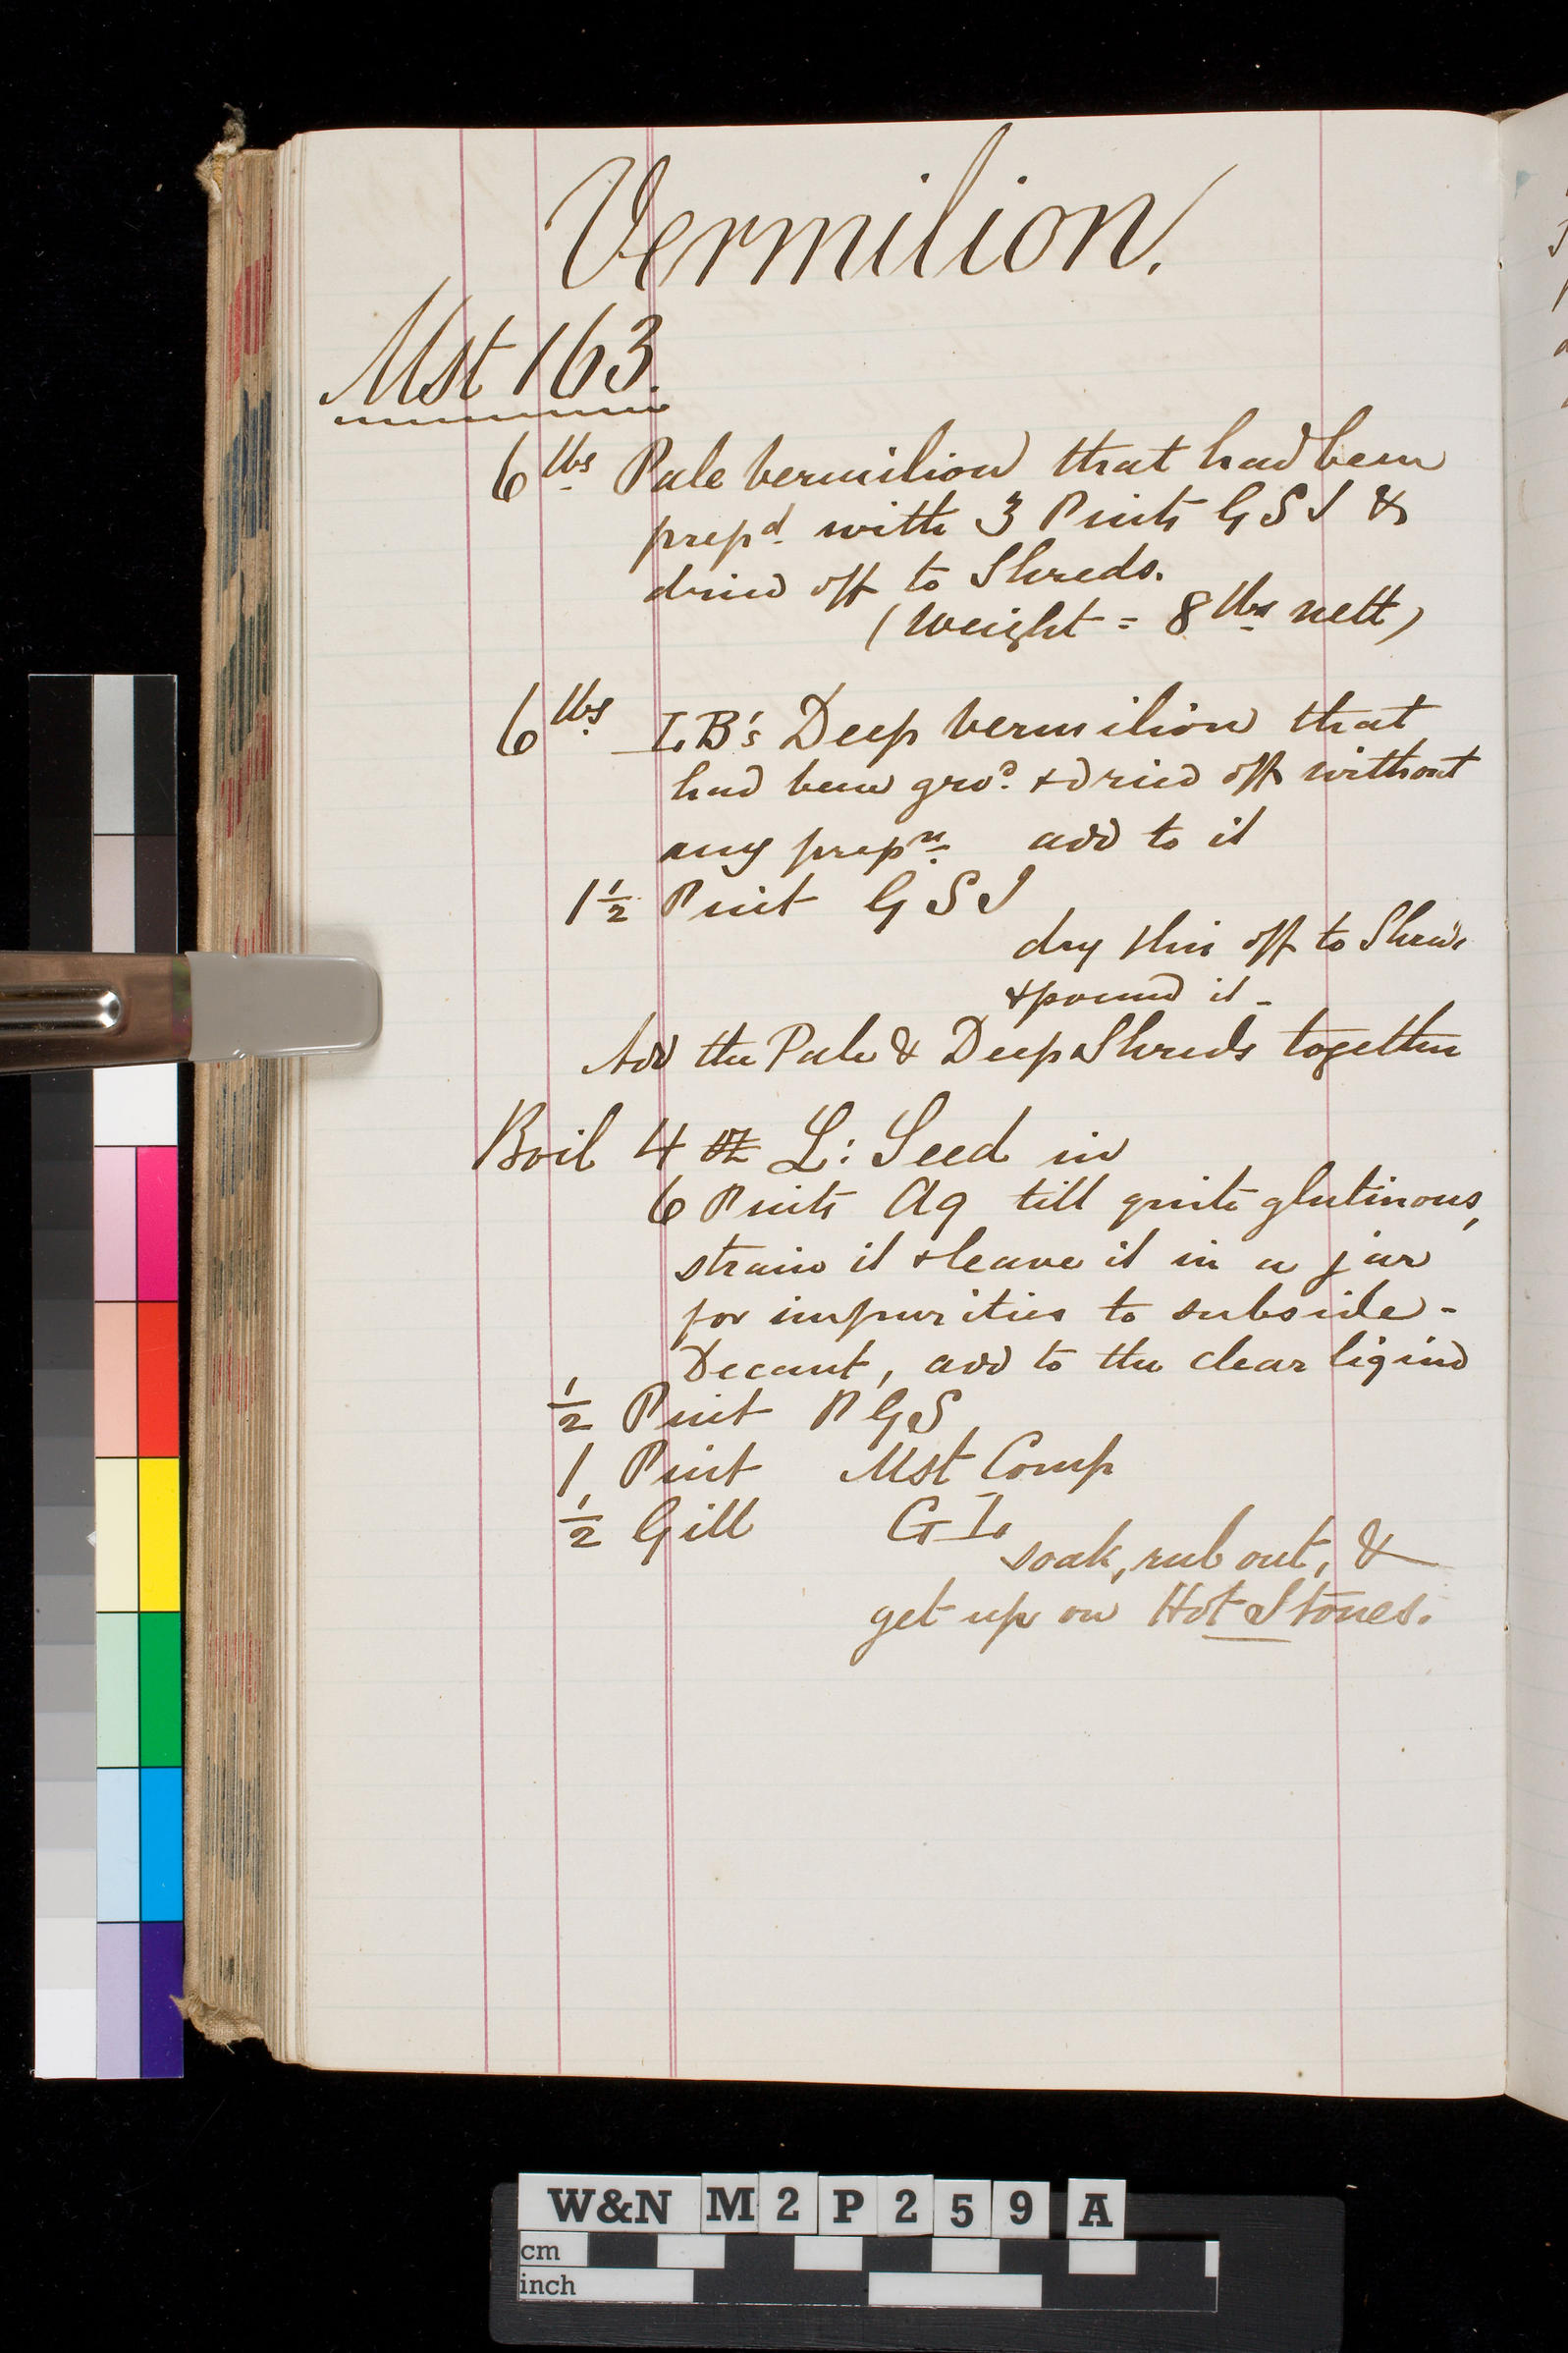 Vermilion.
Mst 163.
6 lbs Pale Vermilion that had been
prepd. with 3 Pints G S I &
dried off to Shreds.
(Weight = 8 lbs nett)
6 lbs I.B's Deep Vermilion that
had been grod. & dried off without
any prepn. add to it
1 1/2 Pint G S I
dry this off to Shreds
& pound it -
Add the Pale & Deep Shreds together
Boil 4 oz L: Seed in
6 Pints Aq till quite glutinous,
strain it & leave it in a jar
for impurities to subside -
Decant, add to the clear liquid
1/2 Pint P G S
1 Pint Mst Comp
1/2 Gill G I.
soak, rub out, &
get up on Hot Stones.
W&N M 2 P 2 5 9 A
cm
inch